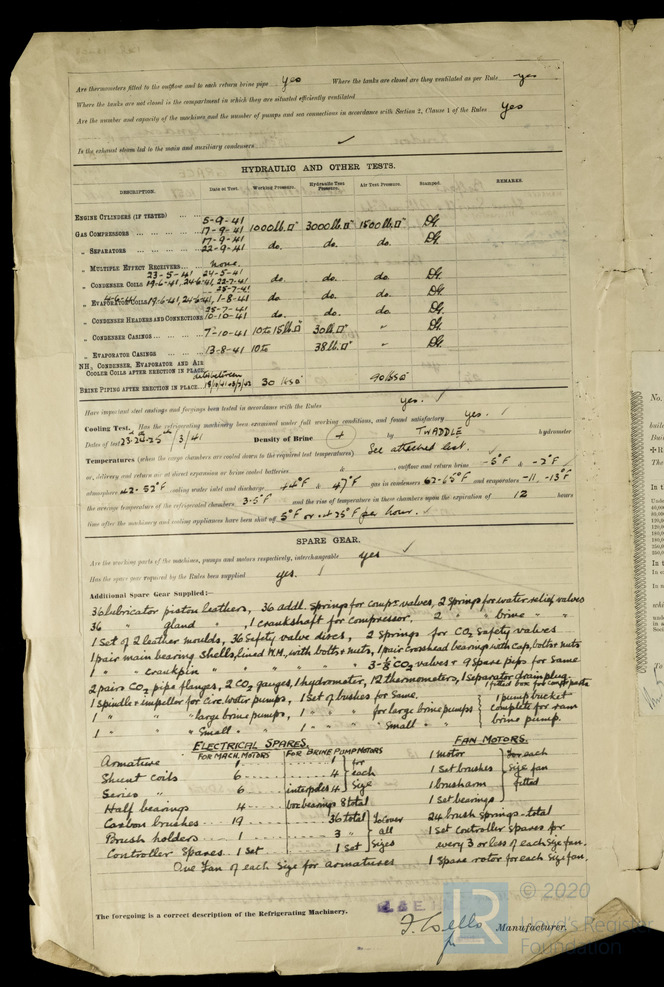 Are thermometers fitted to the outflow and to each return brine pipe yes Where the tanks are closed are they ventilated as per Rule yes
Where the tanks are not closed is the compartment in which they are situated efficiently ventilated
Are the number and capacity of the machines and the number of pumps and sea connections in accordance with Section 2, Clause 4 of the Rules yes
Is the exhaust steam led to the main and auxiliary condensers ✓
HYDRAULIC AND OTHER TESTS.
DESCRIPTION. Date of Test. Working Pressure. Hydraulic Test Pressure. Air Test Pressure. Stamped. REMARKS.
ENGINE CYLINDERS (IF TESTED) 5-9-41
GAS COMPRESSORS 17-9-41 1000 lb.□" 3000 lb.□" 1500 lb.□"
17-9-41
„ SEPARATORS 22-9-41 do. do. do.
„ MULTIPLE EFFECT RECEIVERS none.
23-5-41 24-5-41
„ CONDENSER COILS 19-6-41, 24-6-41, 22-7-41 do. do. do.
25-7-41
„ EVAPORATOR COILS 19-6-41, 24-6-41, 1-8-41 do. do. do.
25-7-41
„ CONDENSER HEADERS AND CONNECTIONS 10-10-41 do. do. do.
„ CONDENSER CASINGS 7-10-41 10 to 15 lb□" 30 lb.□" "
„ EVAPORATOR CASINGS 13-8-41 10 to 38 lb.□" "
NH₃ CONDENSER, EVAPORATOR AND AIR
COOLER COILS AFTER ERECTION IN PLACE
BRINE PIPING AFTER ERECTION IN PLACE 30 lbs□" 90 lbs□"
Have important steel castings and forgings been tested in accordance with the Rules yes. ✓
Cooling Test. Has the refrigerating machinery been examined under full working conditions, and found satisfactory yes.
Dates of test 23-24-25 /3/41 Density of Brine by TWADDLE hydrometer
Temperatures (when the cargo chambers are cooled down to the required test temperatures) See attached list.
or, delivery and return air at direct expansion or brine cooled batteries & , outflow and return brine -5°F & -2°F
atmosphere 42-52°F cooling water inlet and discharge 44°F & 47°F gas in condensers 62-65°F and evaporators -11 -13°F
the average temperature of the refrigerated chambers 3.5°F and the rise of temperature in these chambers upon the expiration of 12 hours
time after the machinery and cooling appliances have been shut off 5°F or .25°F per hour. ✓
SPARE GEAR.
Are the working parts of the machines, pumps and motors respectively, interchangeable yes ✓
Has the spare gear required by the Rules been supplied yes.
Additional Spare Gear Supplied:-
36 lubricator piston leathers, 36 addl. springs for compr. valves, 2 springs for water relief valves
36 " gland " , 1 crankshaft for compressor, 2 " " brine " "
1 Set of 2 leather moulds, 36 Safety valve discs, 2 springs for CO₂ Safety valves
1 pair main bearing shells, lined W.M. with bolts & nuts, 1 pair crosshead bearings with caps, bolts & nuts
1 " crankpin " " " " " 3-⅜ CO₂ valves & 9 Spare pips for same
2 pairs CO₂ pipe flanges, 2 CO₂ gauges, 1 hydrometer, 12 thermometers, 1 Separator drain plug.
1 fitted box for compr. parts
1 spindle & impellor for Circ. water pumps, 1 Set of bushes for same. 1 pump bucket
1 " " " large brine pumps, 1 " " for large brine pumps complete for ram
1 " " " Small " " 1 " " " Small " " brine pump.
ELECTRICAL SPARES. FAN MOTORS.
FOR MACH. MOTORS FOR BRINE PUMP MOTORS
Armature 1 1 for 1 motor For each
Shunt coils 6 4 each 1 Set brushes Size fan
Series " 6 interpoles 4 Size 1 brusharm fitted
Half bearings 4 box bearings 8 total 1 Set bearings
Carbon brushes 19 36 total To cover 24 brush springs total
Brush holders 1 3 " all 1 Set controller spares for
Controller Spares 1 Set 1 Set Sizes every 3 or less of each size fan.
One Fan of each size for armatures 1 Spare rotor for each size fan.
The foregoing is a correct description of the Refrigerating Machinery.
Manufacturer.
© 2020
LR
Lloyd's Register
Foundation